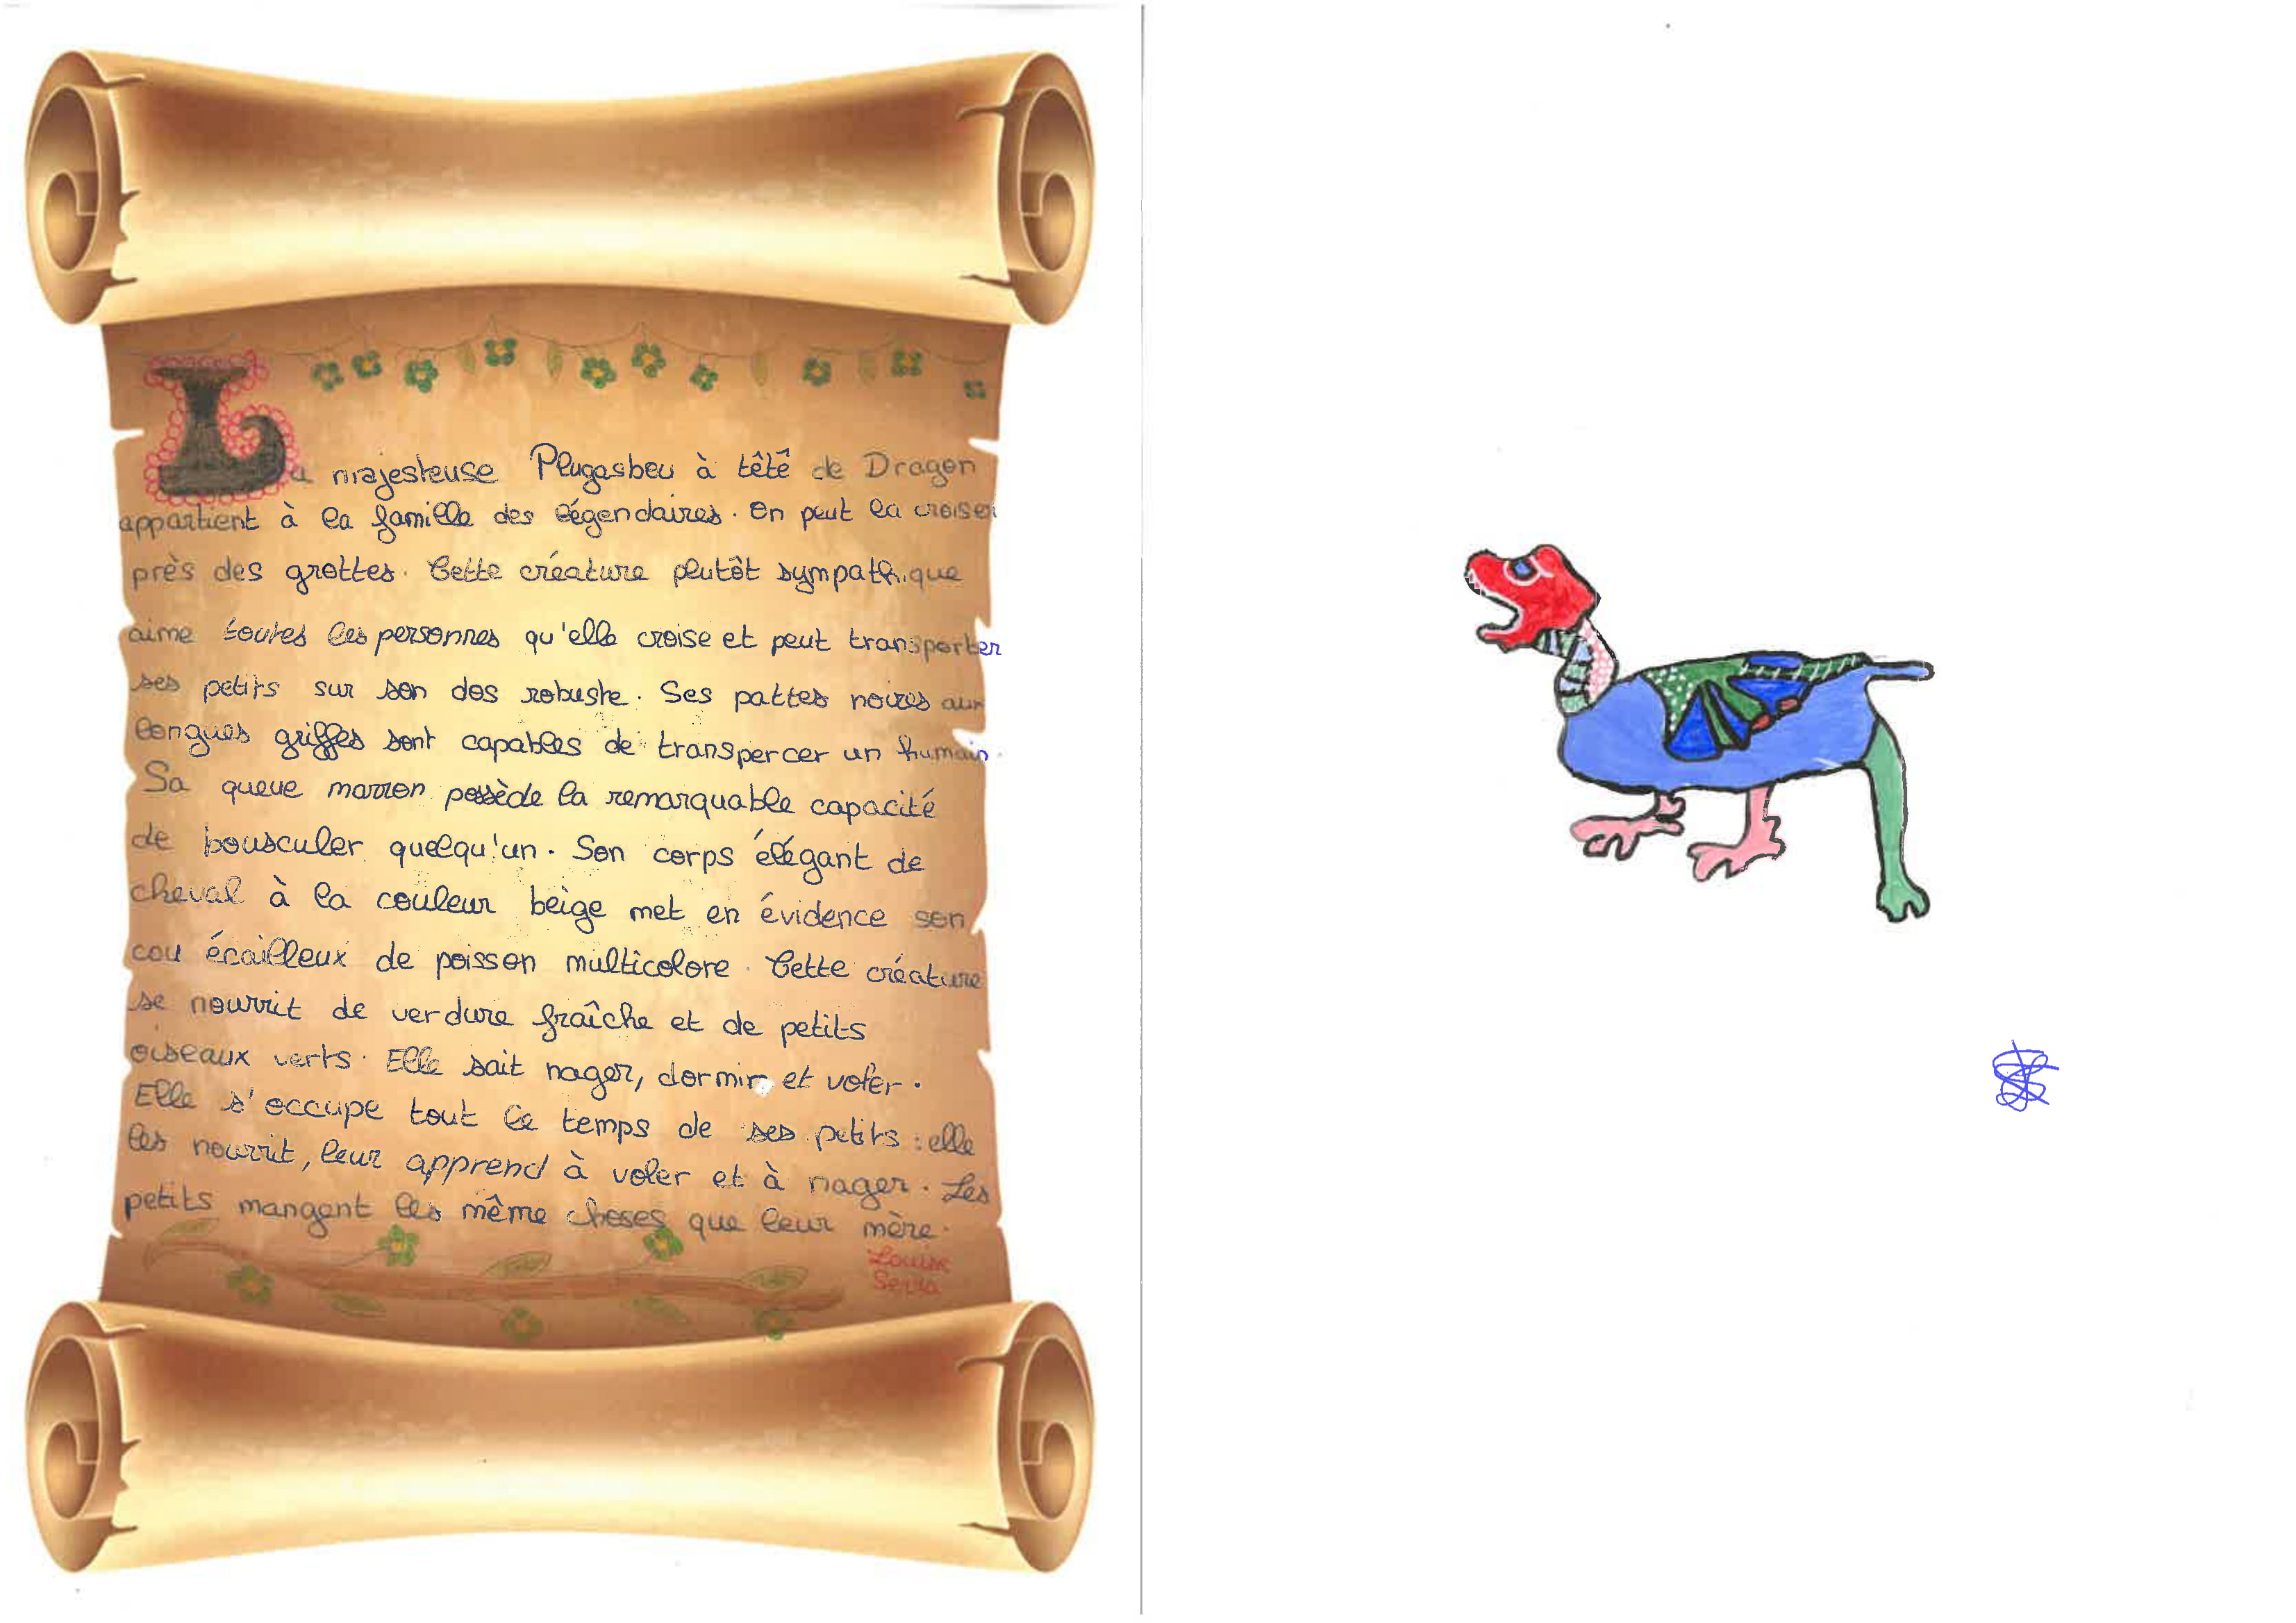 La majesteuse Plugasbeu à têtê de Dragon
appartient à la famille des légendaires. On peut la croiser
près des grottes. Cette créature plutôt sympathique
aime toutes les personnes qu'elle croise et peut transporter
ses petits sur son dos robuste. Ses pattes noires aux
longues griffes sont capables de transpercer un humain.
Sa queue marron possède la remarquable capacité
de bousculer quelqu'un. Son corps élégant de
cheval à la couleur beige met en évidence son
cou écailleux de poisson multicolore. Cette créature
se nourrit de verdure fraîche et de petits
oiseaux verts. Elle sait nager, dormir et voler.
Elle s'occupe tout le temps de ses petits : elle
les nourrit, leur apprend à voler et à nager. Les
petits mangent les même choses que leur mère.
Louise
Serra